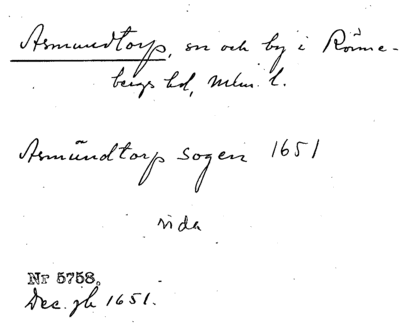 Asmundtorp, sn och by i Rönne-
bergs hd, Mlm. l.
Asmũndtorp sogen 1651
vida
Nr 5758.
Dec. jb 1651.